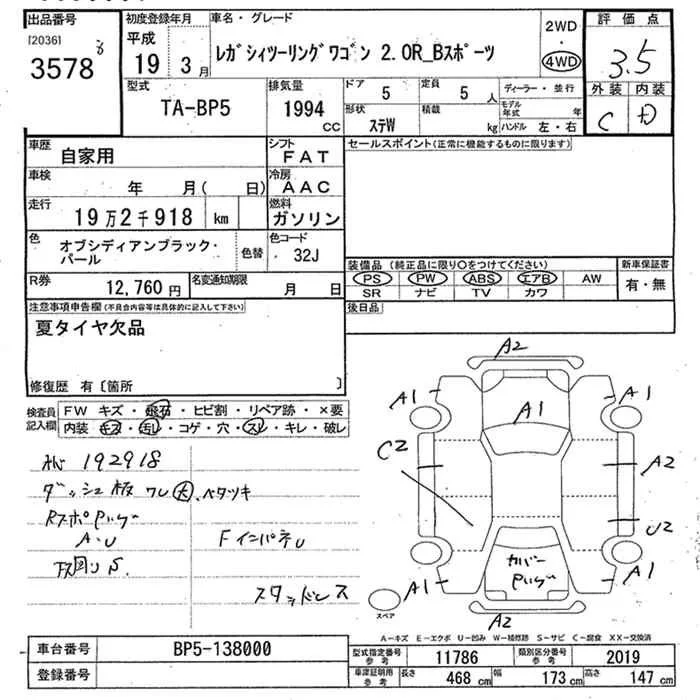 出品番号
[2036]
3578 8
初度登録年月
平成
19年 3月
車名・グレード
レガシィツーリングワゴン 2.0R_Bスポーツ
2WD
・
4WD
評価点
3.5
外装 内装
C D
型式
TA-BP5
排気量
1994
CC
ドア 5
定員 5 人
形状 ステW
積載 kg
ディーラー・並行
モデル年式 年
ハンドル 左・右
車歴 自家用
シフト FAT
車検 年 月( 日)
冷房 AAC
走行 19万2千918 km
燃料 ガソリン
色 オブシディアンブラック・パール
色替
色コード 32J
R券 12,760 円
名変通知期限 月 日
セールスポイント(正常に機能するものに限ります)
装備品 (純正品に限り○をつけてください)
PS PW ABS エアB AW
SR ナビ TV カワ
新車保証書
有・無
後日品
注意事項申告欄(不具合内容等は具体的に記入して下さい)
夏タイヤ欠品
修復歴 有〔箇所 〕
検査員記入欄
FW キズ・飛石・ヒビ割・リペア跡・×要
内装 キズ・汚れ・コゲ・穴・スレ・キレ・破レ
192918
ダッシュ板 ワレ大、ベタツキ
A.U
下回りS.
スタッドレス
A2
A1
A1
A1
C2
A2
U2
カバー
A1
A1
A2
スペア
A-キズ E-エクボ U-凹み W-補修跡 S-サビ C-腐食 XX-交換済
車台番号 BP5-138000
登録番号
型式指定番号 参考 11786
類別区分番号 参考 2019
車庫証明用 参考 長さ 468 cm 幅 173 cm 高さ 147 cm